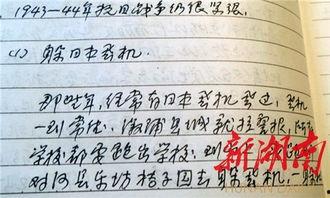 1943—44年抗日战争仍很紧张.
(1) 躲日本飞机.
那些年,经常有日本飞机飞过,飞机
一到常德,溆浦县城就拉警报,所有
学校都要跑出学校:到
对河县东坊桔子园去躲飞机一躲
新湖南